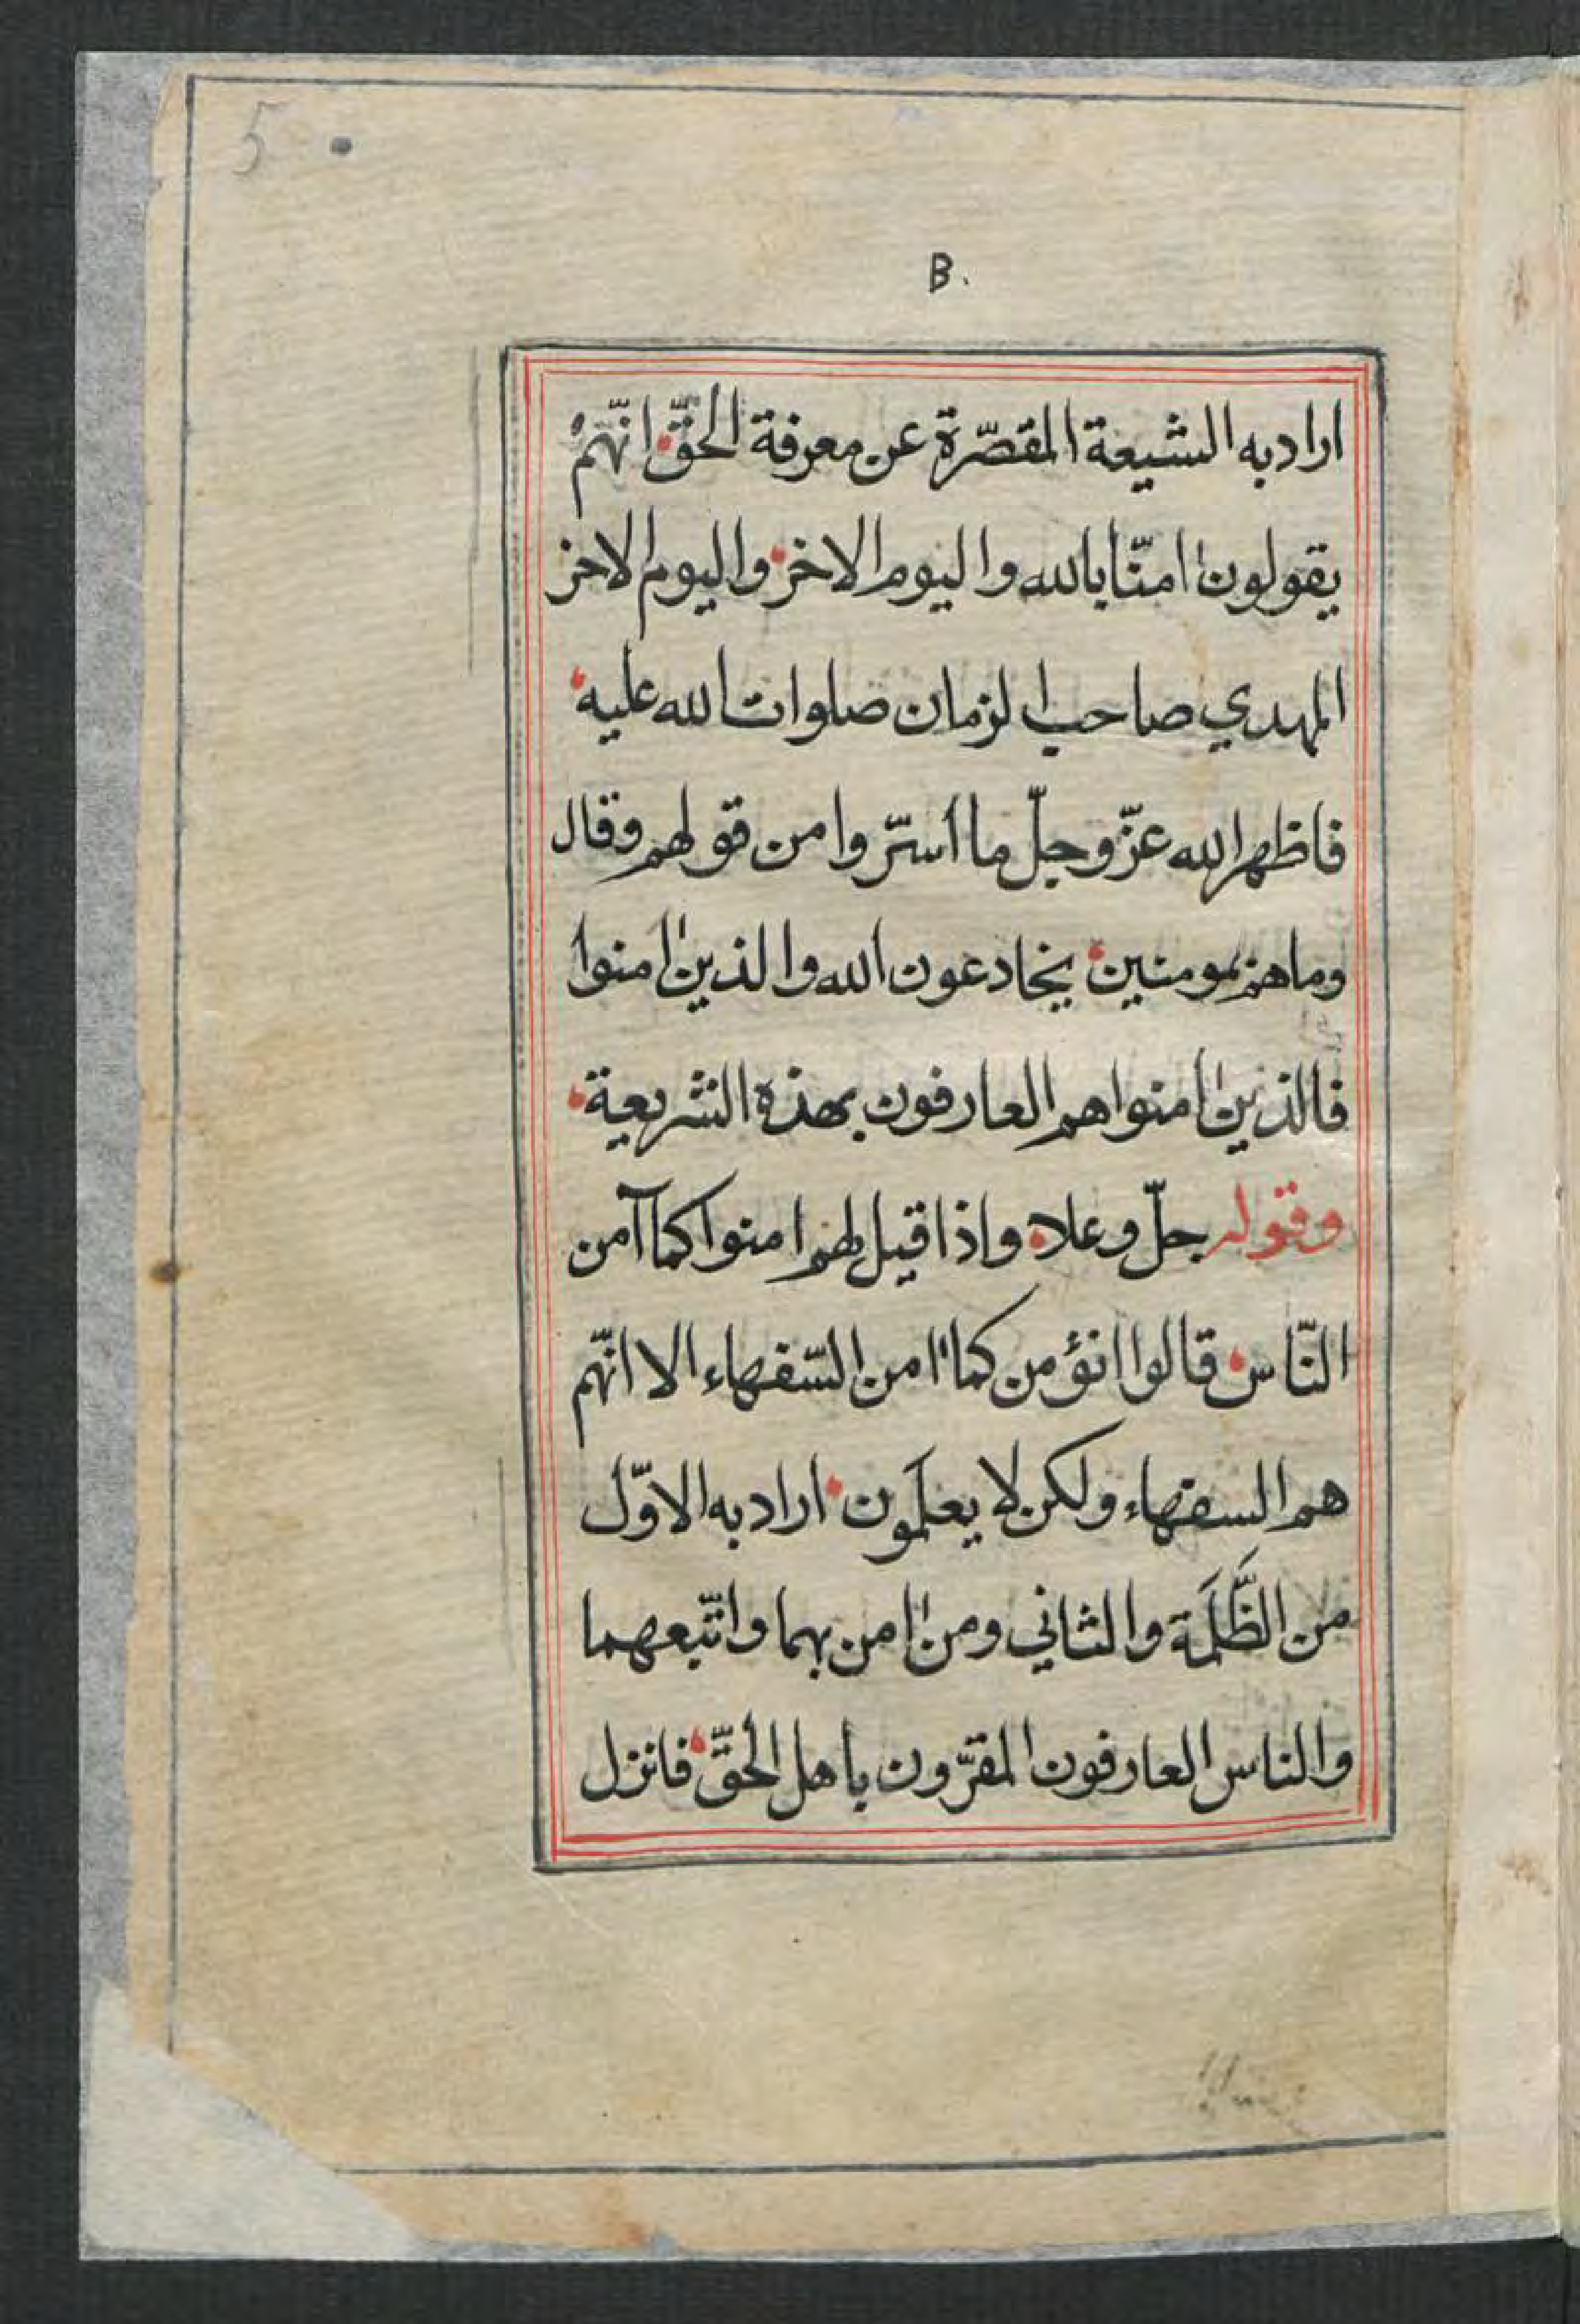 5
B.
اراد به الشيعة المقصّرة عن معرفة الحقّ انّهم
يقولون امنّا بالله واليوم الاخر واليوم الاخر
المهدي صاحب الزمان صلوات الله عليه
فاظهر الله عزّ وجلّ ما اسرّوا من قولهم وقال
وما هم بمومنين يخادعون الله والذين امنوا
فالذين امنوا هم العارفون بهذه الشريعة
وقوله جلّ وعلا واذا قيل لهم امنوا كما آمن
النّاس قالوا انؤمن كما امن السّفهاء الا انّهم
هم السفهاء ولكن لا يعلَمون اراد به الاوّل
من الظَّلَمَة والثاني ومن امن بهما واتّبعهما
والناس العارفون المقرّون باهل الحقّ فانزل